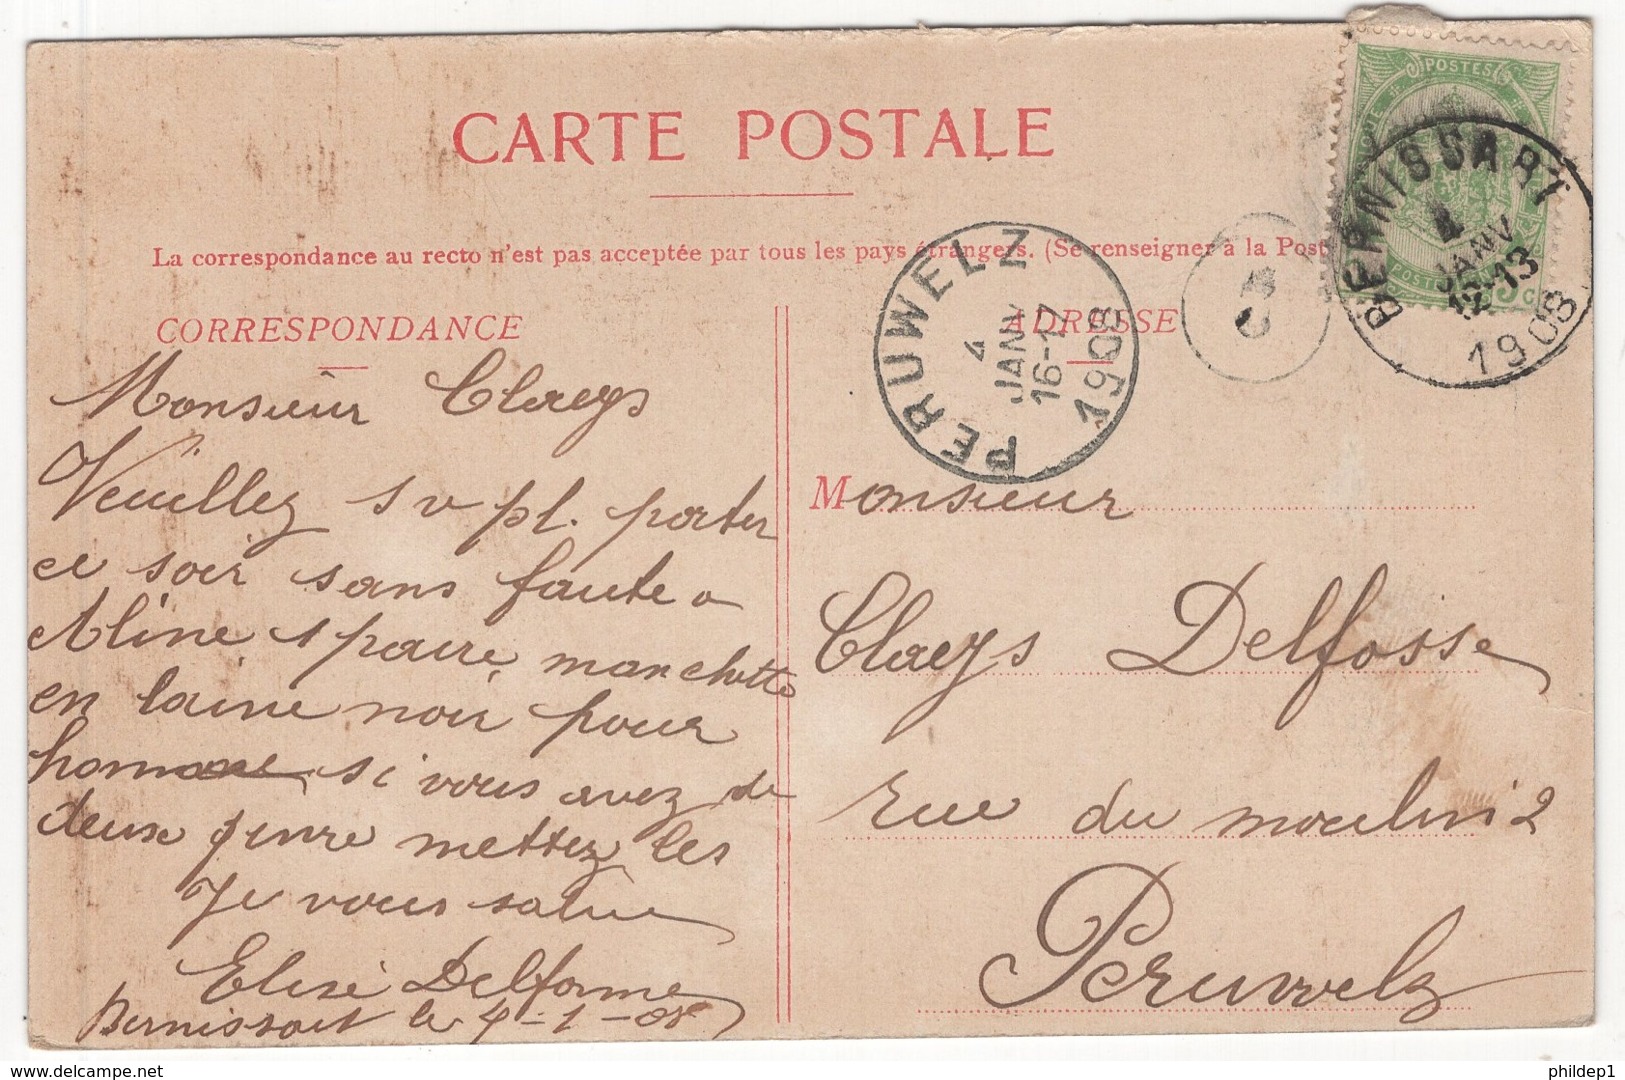 CARTE POSTALE
La correspondance au recto n'est pas acceptée par tous les pays étrangers. (Se renseigner à la Post
CORRESPONDANCE
Monsieur Claeys
Veuillez s v pl. porter
ce soir sans faute a
Aline 1 paire manchette
en laine noir pour
homme si vous avez de
deux jenre mettez les
Je vous salue
Elisé
Bernissart le 4-1-08
ADRESSE
Monsieur
Claeys Delfosse
rue du moulin 2
Peruwelz
PERUWELZ
4
JANV
16-17
1908
BERNISSART
4
JANV
12-13
1908
POSTES
POSTE
5 C
hotelbenelux
phildep1